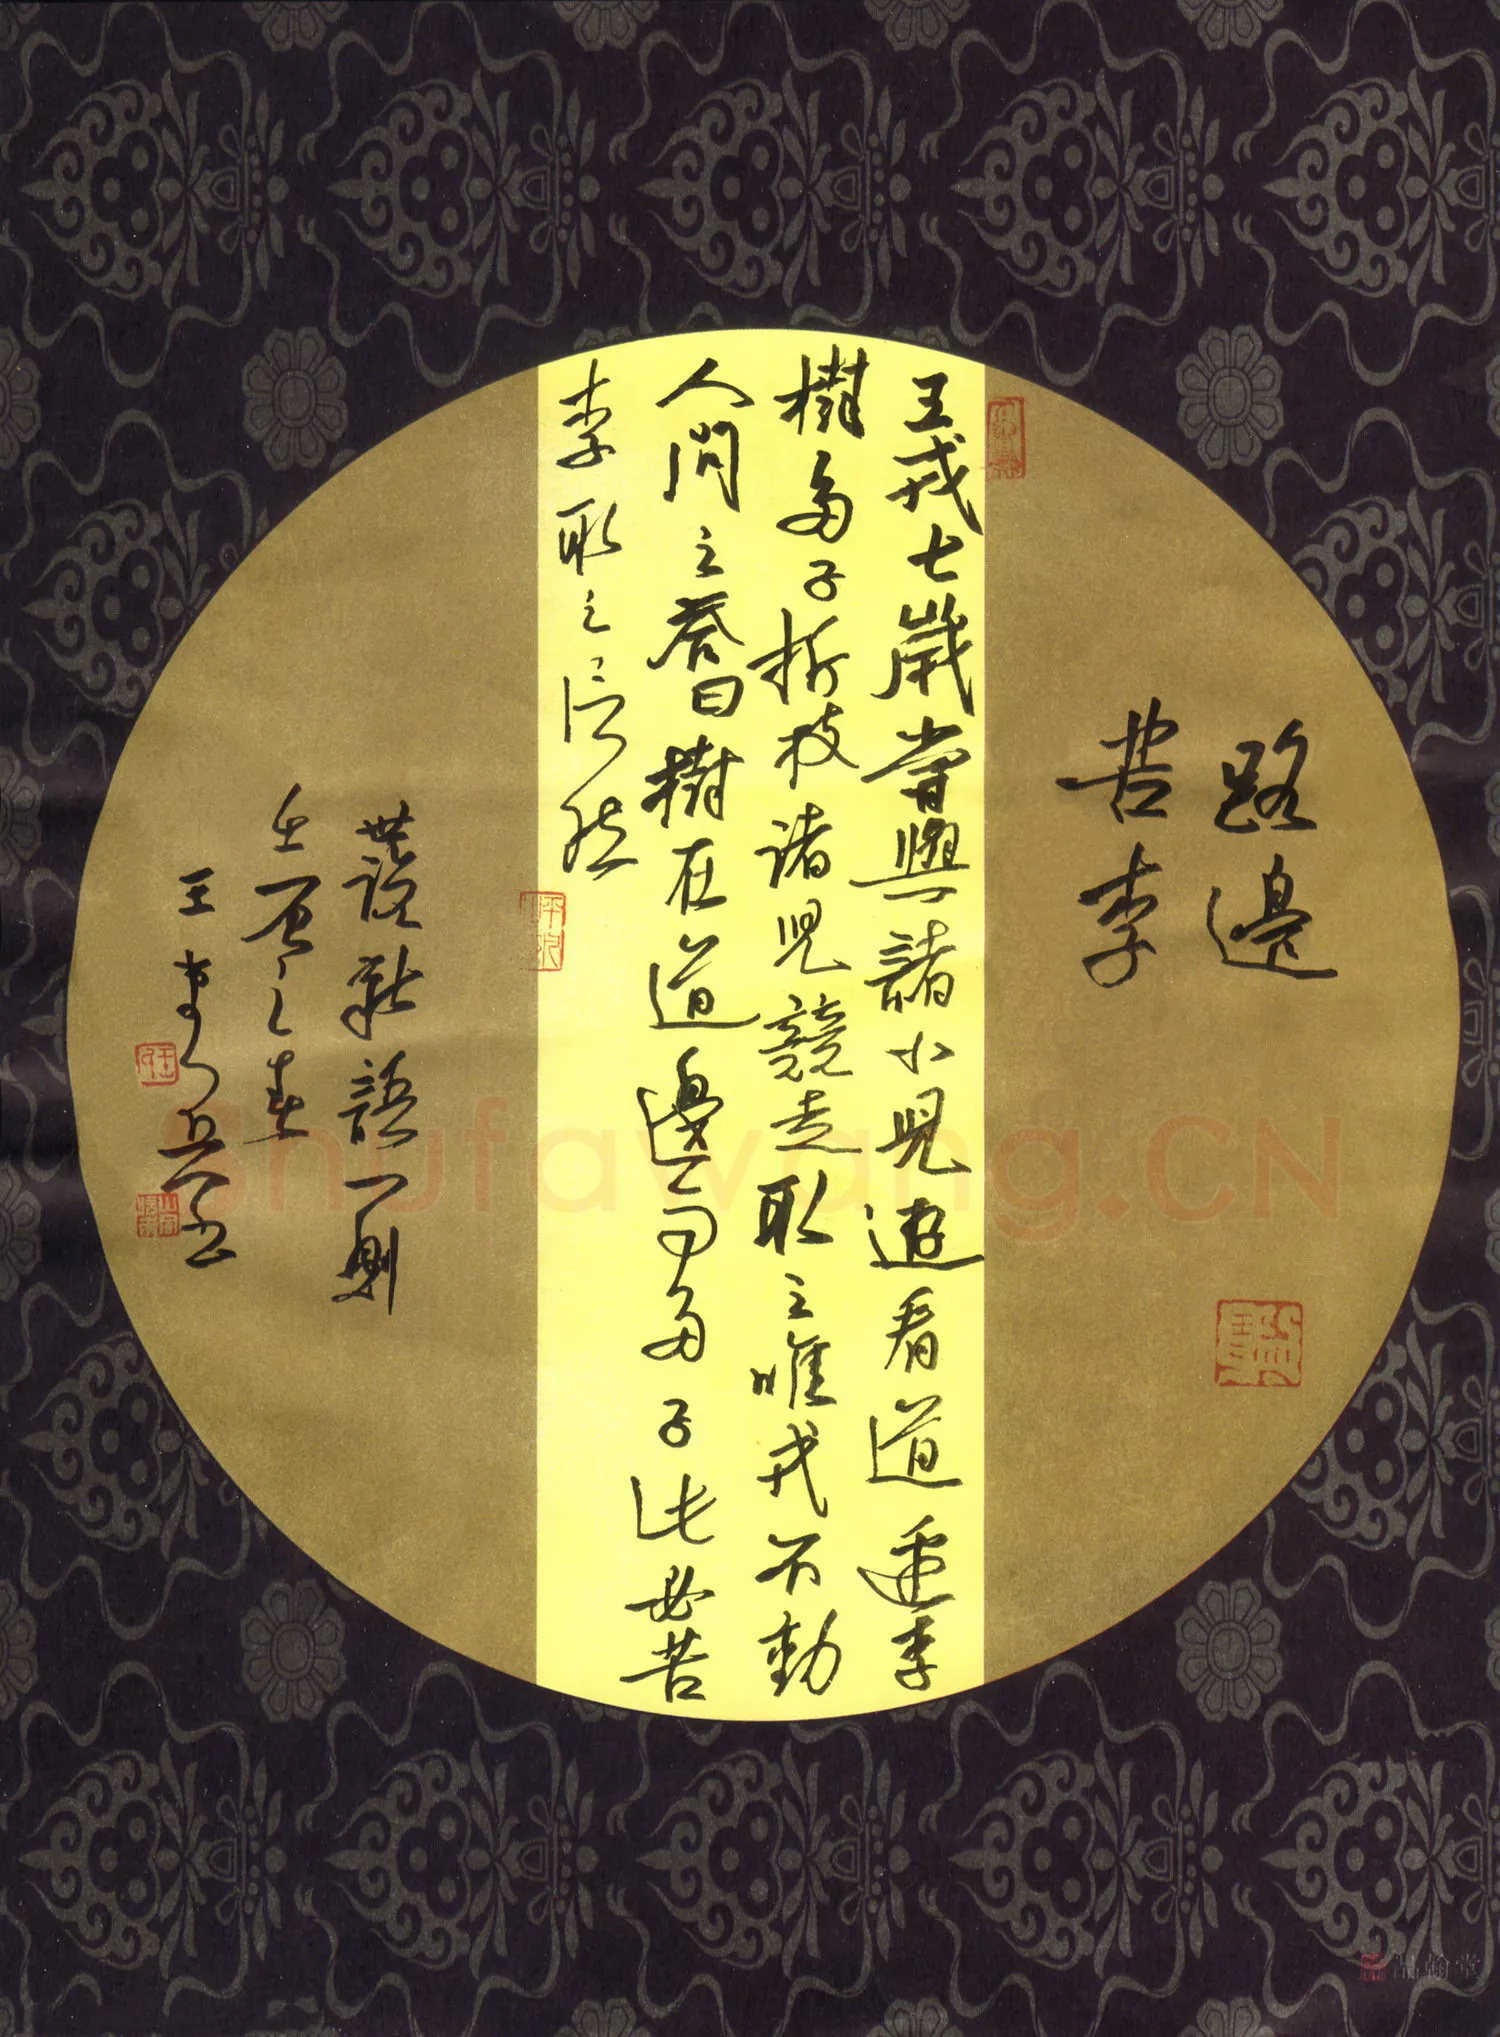 路邊
苦李
王戎七歲嘗與諸小兒遊看道邊李
樹多子折枝诸兒競走取之唯戎不動
人問之答曰樹在道邊而多子此必苦
李取之信然
世說新語一則
之春
王
Shufawang.CN
品翰堂